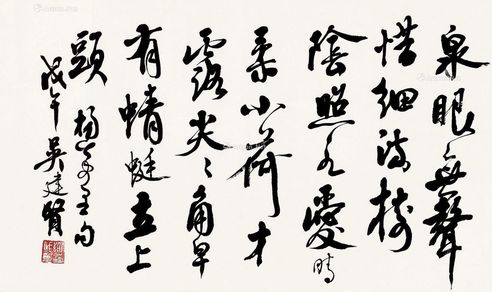 泉眼無聲
惜細流樹
陰照水愛晴
柔小荷才
露尖〻角早
有蜻蜓立上
頭 楊万里句
戊午吳建賢